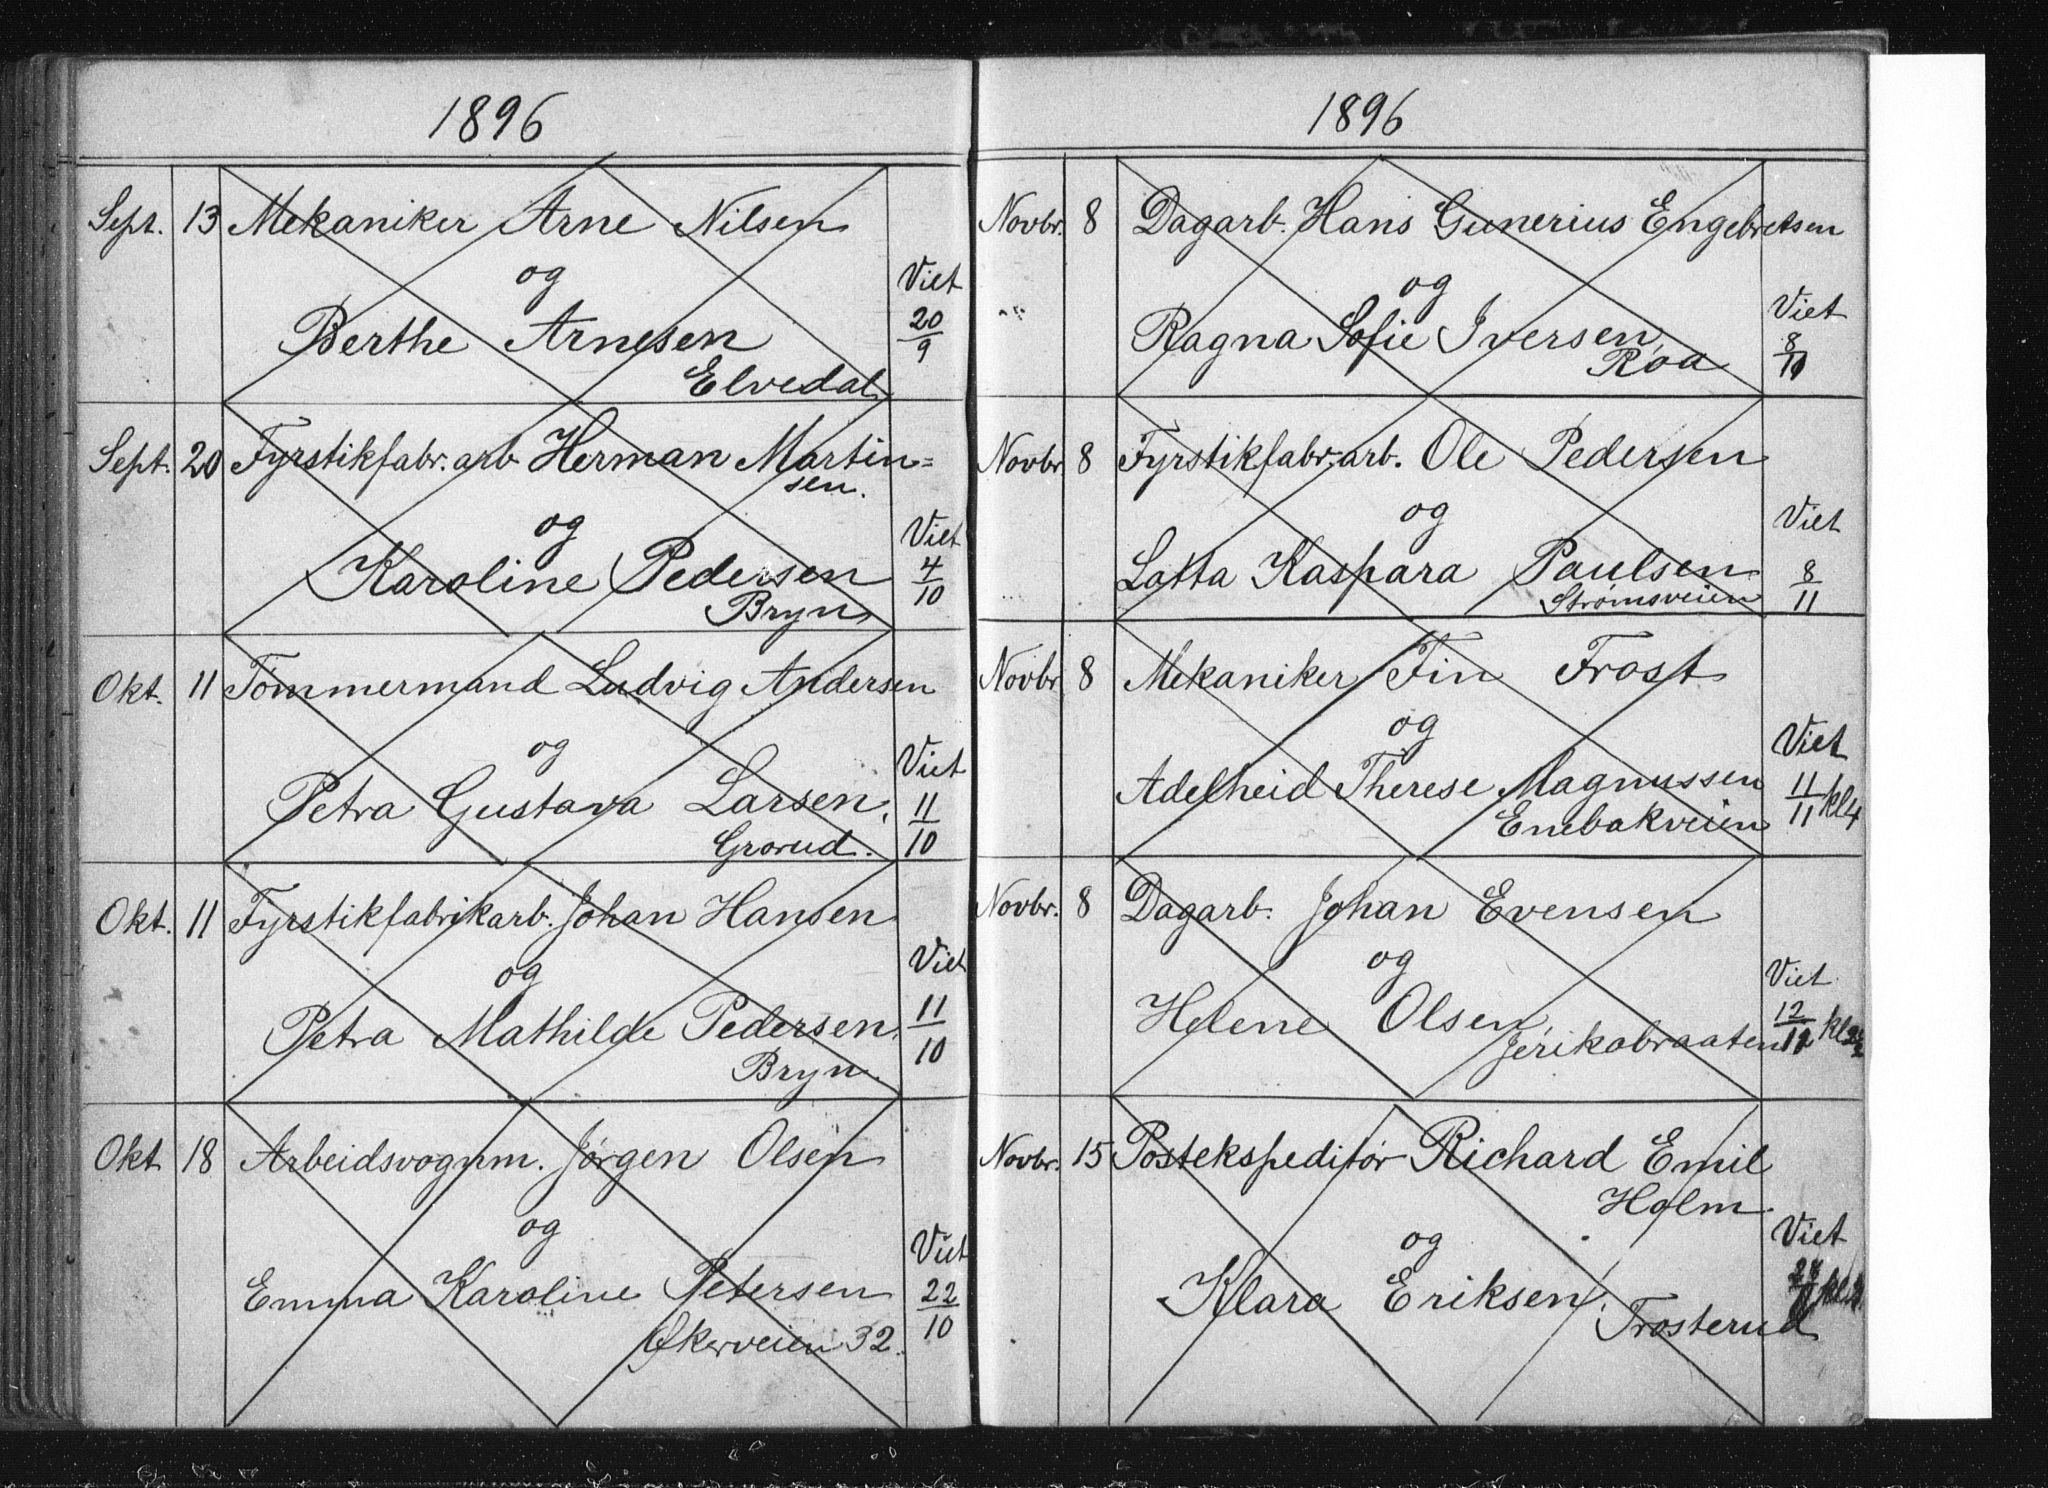 1896
Sept. 13 Mekaniker Arne Nilsen
og
Viet
Berthe Arnesen 20/9
Elvedal
Sept. 20 Fyrstikfabr. arb. Herman Martin=
sen.
og
Viet
Karoline Pedersen 4/10
Bryn
Okt. 11 Tømmermand Ludvig Andersen
og
Viet
Petra Gustava Larsen, 11/10
Grorud.
Okt. 11 Fyrstikfabrikarb. Johan Hansen
og
Viet
Petra Mathilde Pedersen, 11/10
Bryn.
Okt 18 Arbeidsvognm. Jørgen Olsen
og
Viet
Emma Karoline Petersen 22/10
Økerveien 32.
1896
Novbr. 8 Dagarb. Hans Gunerius Engebretsen
og
Viet
Ragna Sofie Iversen, 8/11
Roa
Novbr 8 Fyrstikfabr. arb. Ole Pedersen
og
Viet
Lotta Kaspara Paulsen 8/11
Strømsveien
Novbr 8 Mekaniker Fin Frost
og
Viet
Adelheid Therese Magnussen 11/11 kl 4
Enebakveien
Novbr. 8 Dagarb. Johan Evensen
og
Viet
Helene Olsen, 12/12 kl
Jerikobraaten
Novbr. 15 Postekspeditør Richard Emil
Holm
og
Viet
Klara Eriksen, kl.
Frosterud